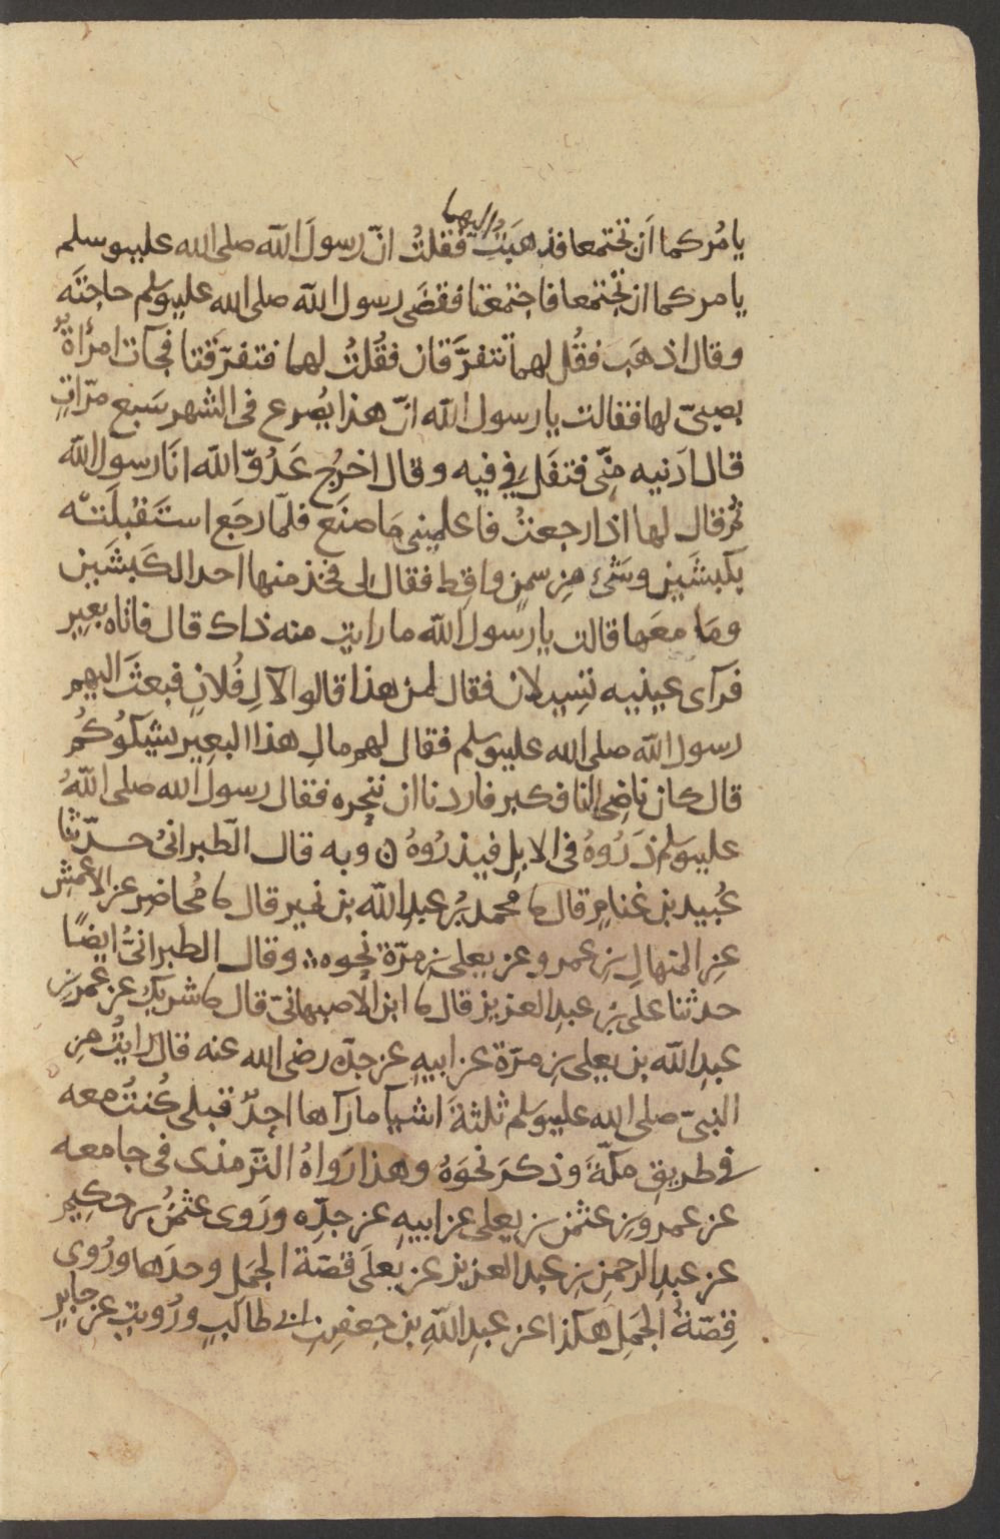 اليهما
يامُركما اَن تجتمعا فذهبَتُ فقلتُ انّ رسولَ اللّه صلى الله عليه وسلم
يامركما ان تجْتمعا فاجتمعتا فقضَى رسول اللّه صلى الله عليه وسلم حاجتَه
وقال اذهَب فقُل لهما تتفرَّقان فقُلتُ لهما فتفرّقتا فجآت امرأةٌ
بصبىّ لها فقالت يارسول اللّه انّ هذا يُصرع فى الشهر سَبع مرّاتٍ
قال اَدنيه مِنّى فتفَل فى فيه وقال اخرُج عَدُوّ اللّه انَا رسول اللّه
ثُم قال لها اذا رجعتُ فاعلمينى مَا صنَع فلمّا رجَع استَقبلَتْه
بكبشَين وشَىْءٍ مِن سمنٍ واقِط فقال لى فخذ منها احد الكَبشَين
ومَا معَها قالت يارسول اللّه ما رايت منه ذاك قال فاتاه بعِير
فرآى عينيه تسِيلان فقال لمن هذا قالوا لآلِ فُلانٍ فبعثَ اليهم
رسول اللّه صلى الله عليه وسلم فقال لهم مالِ هذا البعِير يشكَوُكُم
قال كان ناضِحا لنا فكبر فاردنا ان ننحِره فقال رسول الله صلى اللّهُ
عليه وسلم ذَرُوهُ فى الابِل فيذرُوهُ ۞ وبه قال الطّبرانىُ حدّثنا
عُبيد بن غنامٍ قال ثنا محمد بنُ عبدِ اللّه بن نمير قال ثنا مُحاضِر عن الاعمشِ
عنِ المنهالِ بنِ عمرو عن يعلى بنِ مرّة نحوه ∴ وقال الطبرانىُّ ايضًا
حدثنا على بنُ عبدِ العزيز قال ثنا ابن الاصبهانىّ قال ثنا شريك عن عمر بنِ
عبدِ اللّه بن يعلى بنِ مرّة عن ابيهِ عن جدّه رضى الله عنه قال رايتُ مِن
النبىّ صلى الله عليه وسلم ثلثةَ اشيآ مارآها احدٌ قبلى كُنتُ معه
فى طريقِ مكّةَ وذكرَ نحوَهُ وهذا رَواهُ التّرمذى فى جامعه
عن عمرو بنِ عثمن بنِ يعلى عن ابيهِ عن جدِّه ورَوى عثمنُ بن حكِيم
عن عبدِ الرحمنِ بنِ عبد العزيز عن يعلَى قصّة الجمَل وحدَها ورُوى
قِصّةُ الجَمِل هكذا عن عبدِ اللّهِ بن جعفرِ بنِ ابى طالبٍ ورُويت عن جابرٍ